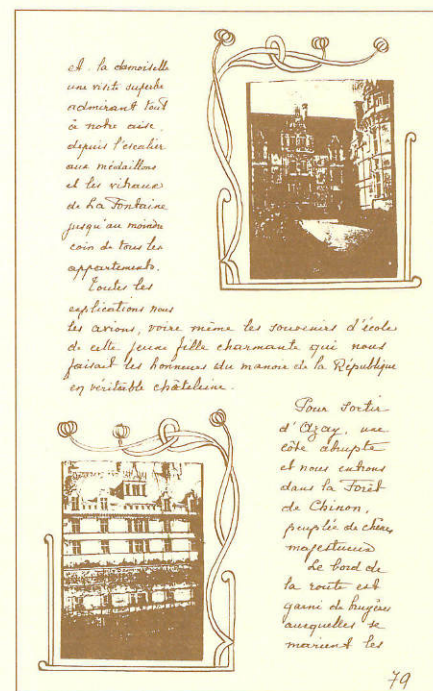 et la demoiselle
une visite superbe
admirant tout
à notre aise,
depuis l'escalier
aux médaillons
et les vitraux
de La Fontaine
jusqu'au moindre
coin de tous les
appartements.
Toutes les
explications nous
les avions, voire même les souvenirs d'école
de cette jeune fille charmante qui nous
faisait les honneurs du manoir de la République
en véritable châtelaine.
Pour sortir
d'Azay, une
côte abrupte
et nous entrons
dans la Forêt
de Chinon,
peuplée de chênes
majestueux
Le bord de
la route est
garni de bruyères
auxquelles se
marient les
79